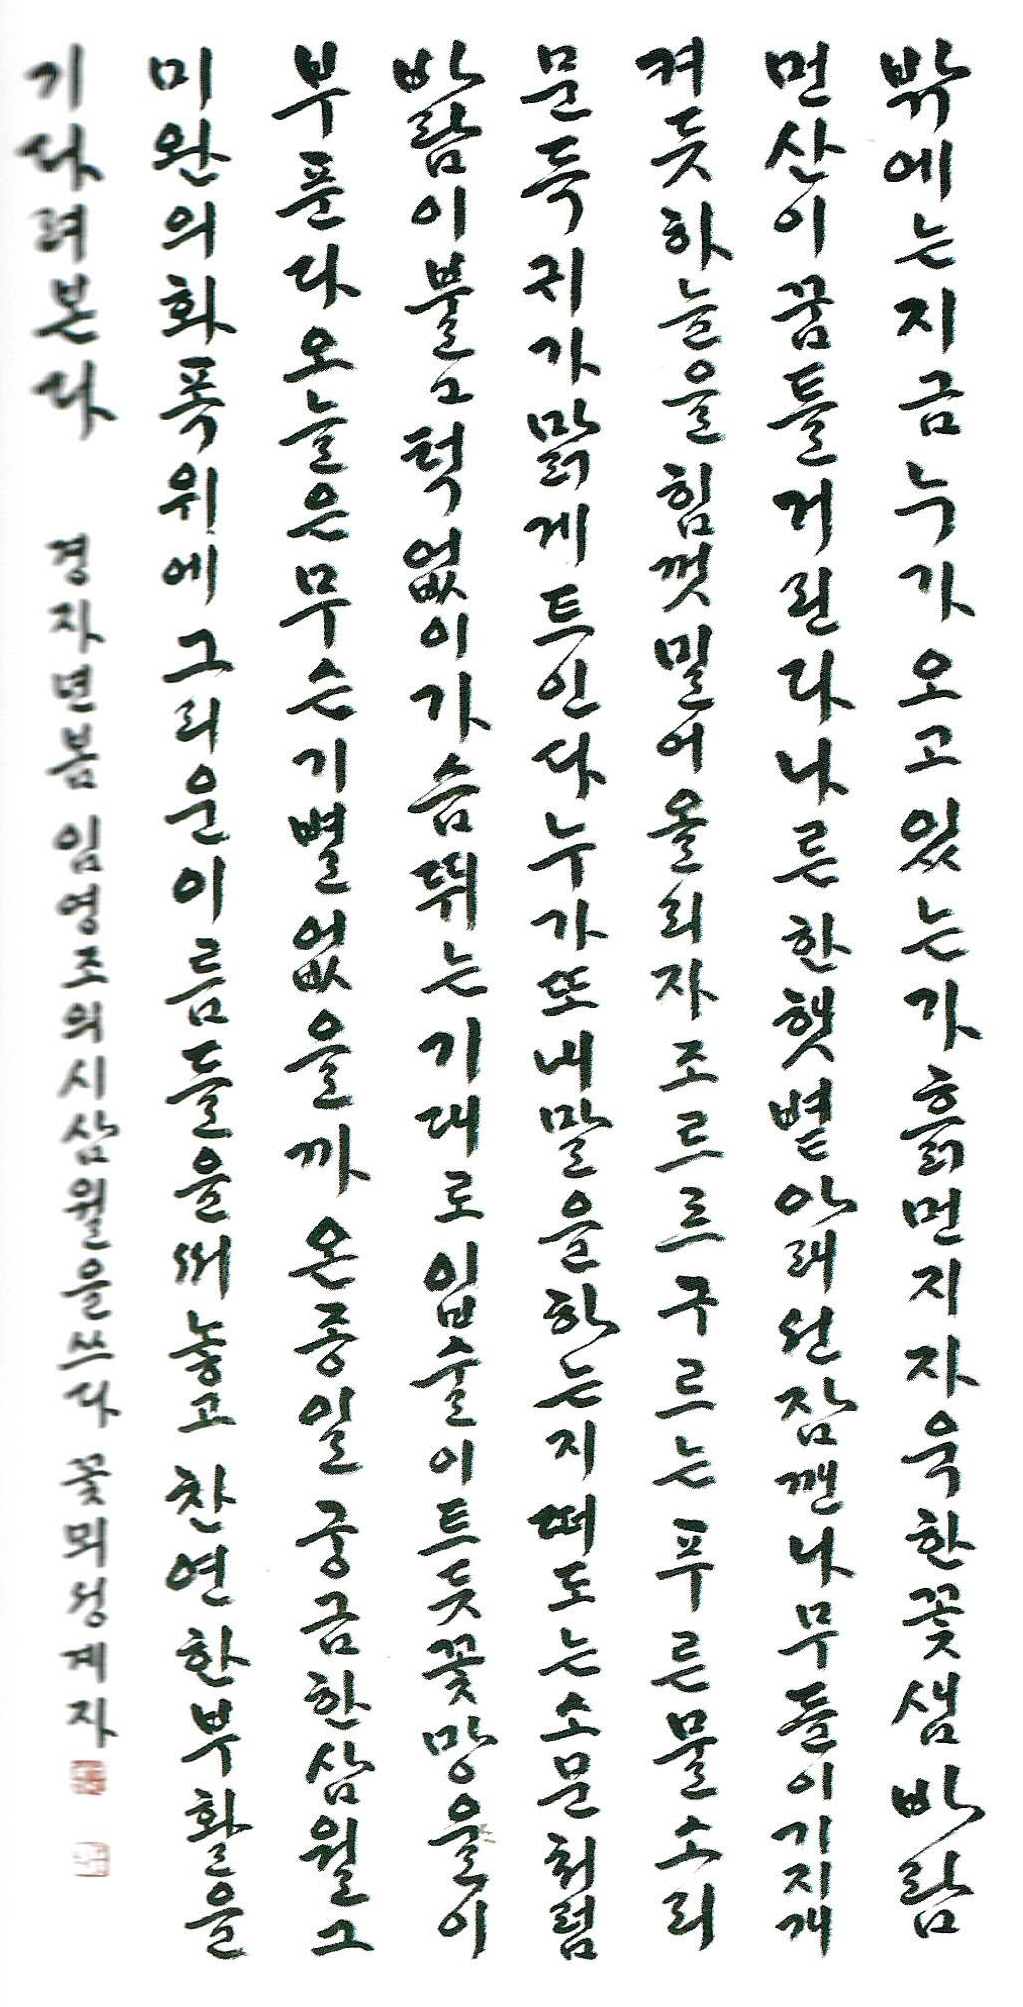 밖에는지금누가오고있는가흙먼지자욱한꽃샘바람
먼산이꿈틀거린다나른한햇볕아래선잠깬나무들이기지개
켜듯하늘을힘껏밀어올리자조르르구르는푸른물소리
문득귀가맑게트인다누가또내말을하는지떠도는소문처럼
바람이불고턱없이가슴뛰는기대로입술이트듯꽃망울이
부푼다오늘은무슨기별없을까온종일궁금한삼월그
미완의화폭위에그리운이름들을써놓고찬연한부활을
기다려본다 경자년봄임영조의시삼월을쓰다꽃뫼성계자